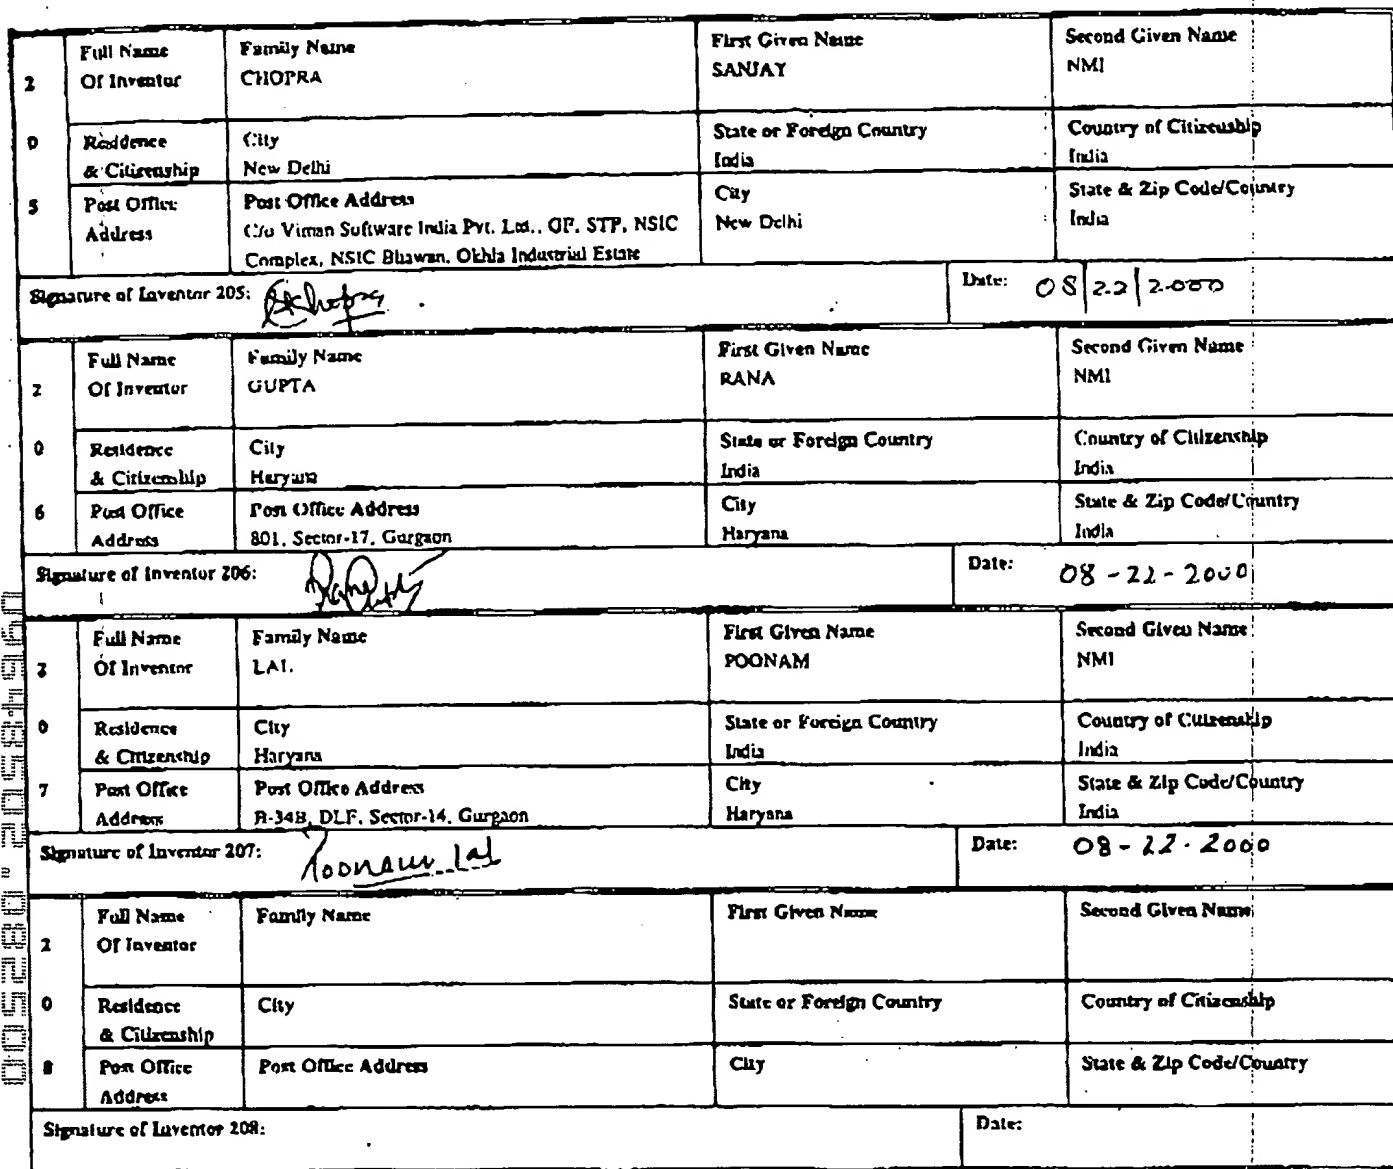 2 Full Name Of Inventor
Family Name CHOPRA
First Given Name SANJAY
Second Given Name NMI
0 Residence & Citizenship
City New Delhi
State or Foreign Country India
Country of Citizenship India
5 Post Office Address
Post Office Address
C/o Viman Software India Pvt. Ltd., GF, STP, NSIC
Complex, NSIC Bhawan, Okhla Industrial Estate
City New Delhi
State & Zip Code/Country India
Signature of Inventor 205: SChopra
Date: 08/22/2000
2 Full Name Of Inventor
Family Name GUPTA
First Given Name RANA
Second Given Name NMI
0 Residence & Citizenship
City Haryana
State or Foreign Country India
Country of Citizenship India
6 Post Office Address
Post Office Address
801, Sector-17, Gurgaon
City Haryana
State & Zip Code/Country India
Signature of Inventor 206:
Date: 08-22-2000
2 Full Name Of Inventor
Family Name LAL
First Given Name POONAM
Second Given Name NMI
0 Residence & Citizenship
City Haryana
State or Foreign Country India
Country of Citizenship India
7 Post Office Address
Post Office Address
B-34B, DLF, Sector-14, Gurgaon
City Haryana
State & Zip Code/Country India
Signature of Inventor 207: Poonam Lal
Date: 08-22-2000
2 Full Name Of Inventor
Family Name
First Given Name
Second Given Name
0 Residence & Citizenship
City
State or Foreign Country
Country of Citizenship
8 Post Office Address
Post Office Address
City
State & Zip Code/Country
Signature of Inventor 208:
Date: